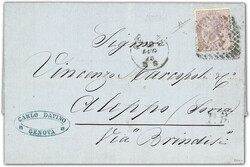 Signor
Vincenzo Marcopoli &
Aleppo (Soria)
Via Brindisi
CARLO DAPINO
GENOVA